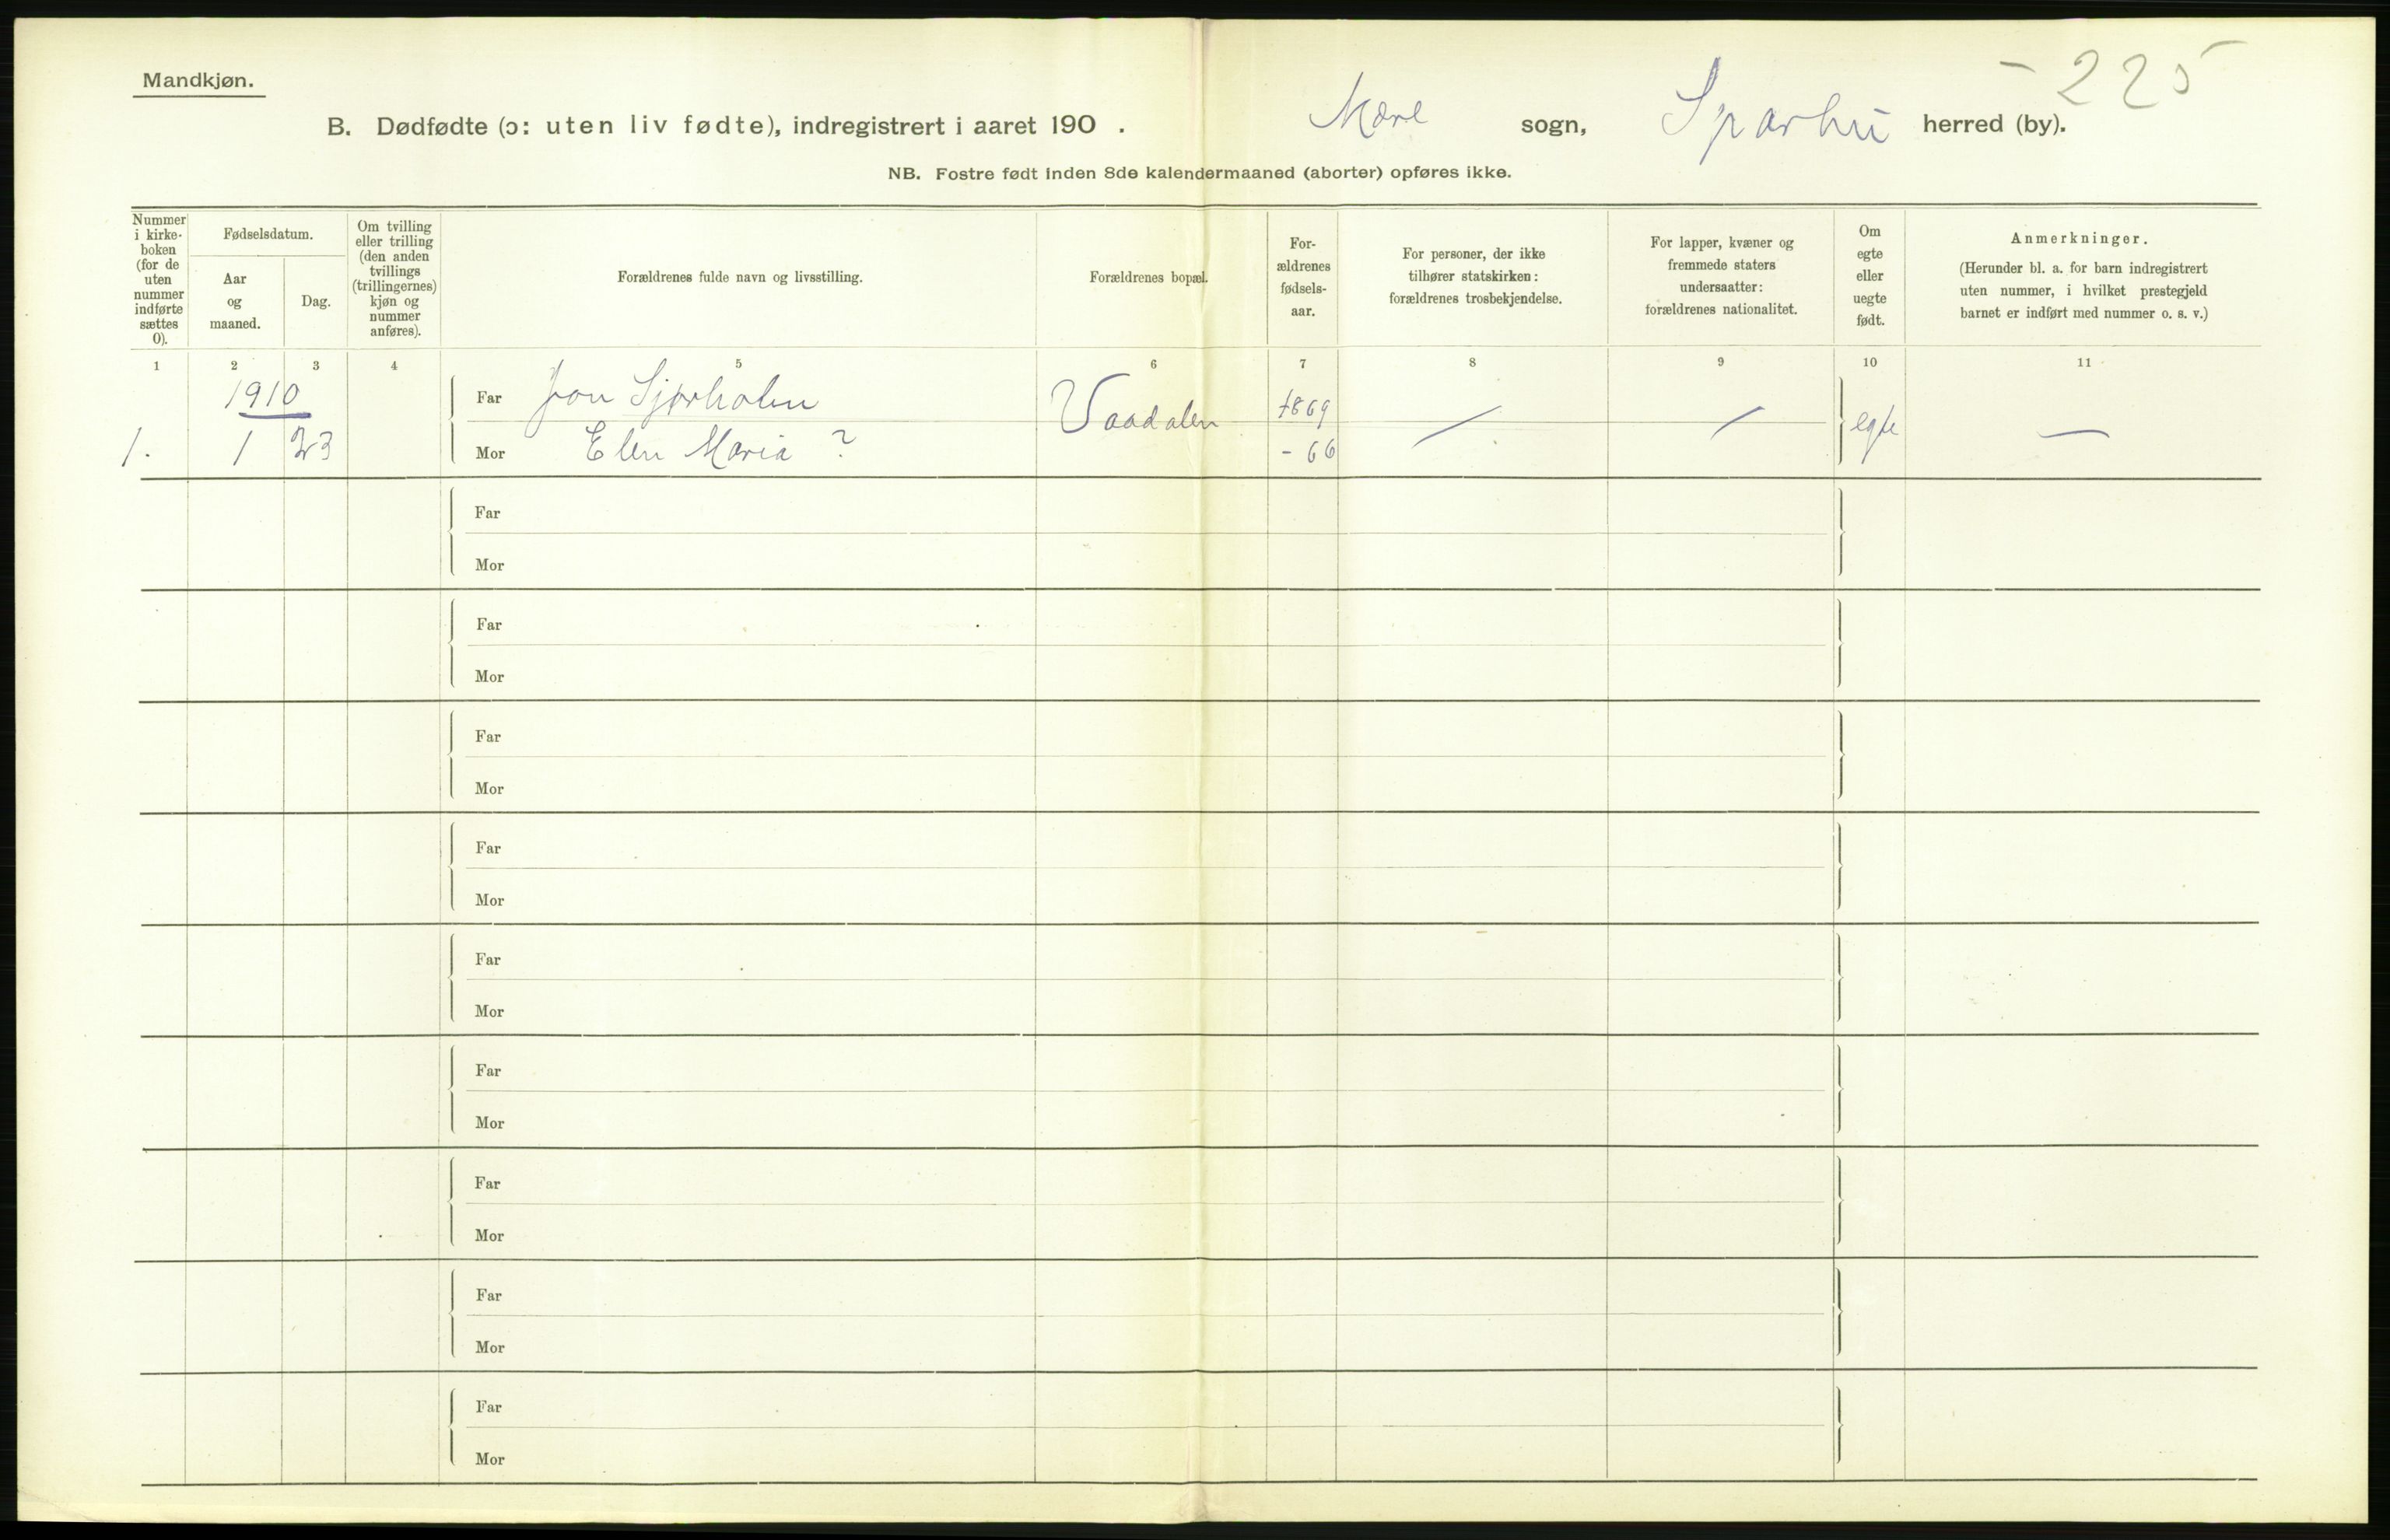 Mandkjøn.
- 225
B. Dødfødte (ɔ: uten liv fødte), indregistrert i aaret 190 . Mære sogn, Sparbu herred (by).
NB. Fostre født inden 8de kalendermaaned (aborter) opføres ikke.
Nummer i kirke-boken (for de uten nummer indførte sættes 0).
Fødselsdatum.
Aar og maaned.
Dag.
Om tvilling eller trilling (den anden tvillings (trillingernes) kjøn og nummer anføres).
Forældrenes fulde navn og livsstilling.
Forældrenes bopæl.
For-ældrenes fødsels-aar.
For personer, der ikke tilhører statskirken: forældrenes trosbekjendelse.
For lapper, kvæner og fremmede staters undersaatter: forældrenes nationalitet.
Om egte eller uegte født.
Anmerkninger.
(Herunder bl. a. for barn indregistrert uten nummer, i hvilket prestegjeld barnet er indført med nummer o. s. v.)
1 2 3 4 5 6 7 8 9 10 11
1910 Far Jon Vaadalen 1869
1. 1 23 Mor Elen Maria ? - 66 / / egte —
Far
Mor
Far
Mor
Far
Mor
Far
Mor
Far
Mor
Far
Mor
Far
Mor
Far
Mor
Far
Mor